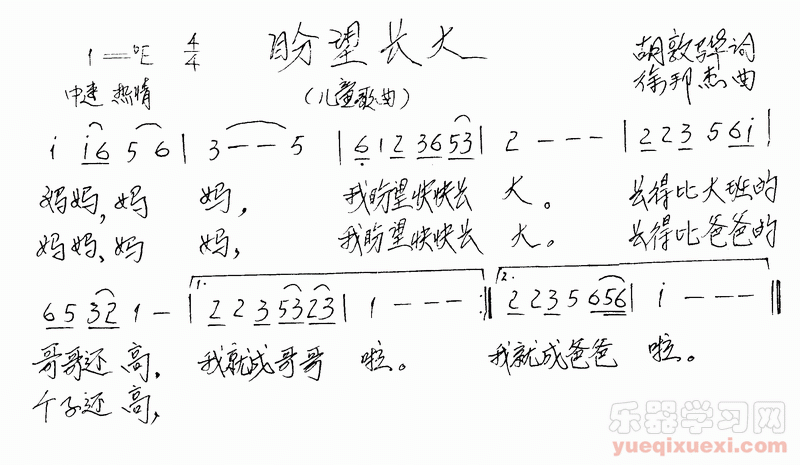 盼望长大
1=♭E 4/4
胡敦骅词
徐邦杰曲
中速 热情
(儿童歌曲)
i i6 5 6 | 3 - - 5 | 6 1 2 3 6 5 3 | 2 - - - | 2 2 3 5 6 i |
妈妈,妈 妈, 我盼望快快长 大。 长得比大班的
妈妈,妈 妈, 我盼望快快长 大。 长得比爸爸的
6 5 3 2 1 - | 1. 2 2 3 5 3 2 3 | 1 - - - :|| 2. 2 2 3 5 6 5 6 | i - - - ||
哥哥还 高, 我就成哥哥 啦。 我就成爸爸 啦。
个子还 高,
乐器学习网
yueqixuexi.com